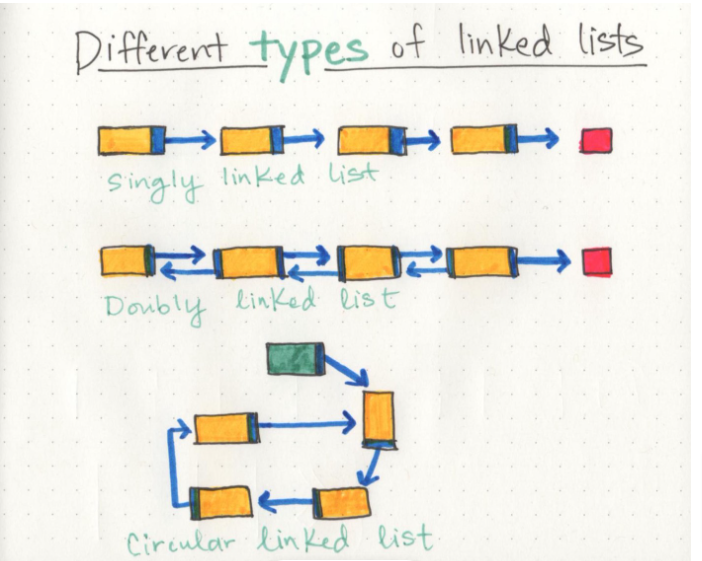 Different types of linked lists
singly linked list
Doubly linked list
Circular linked list